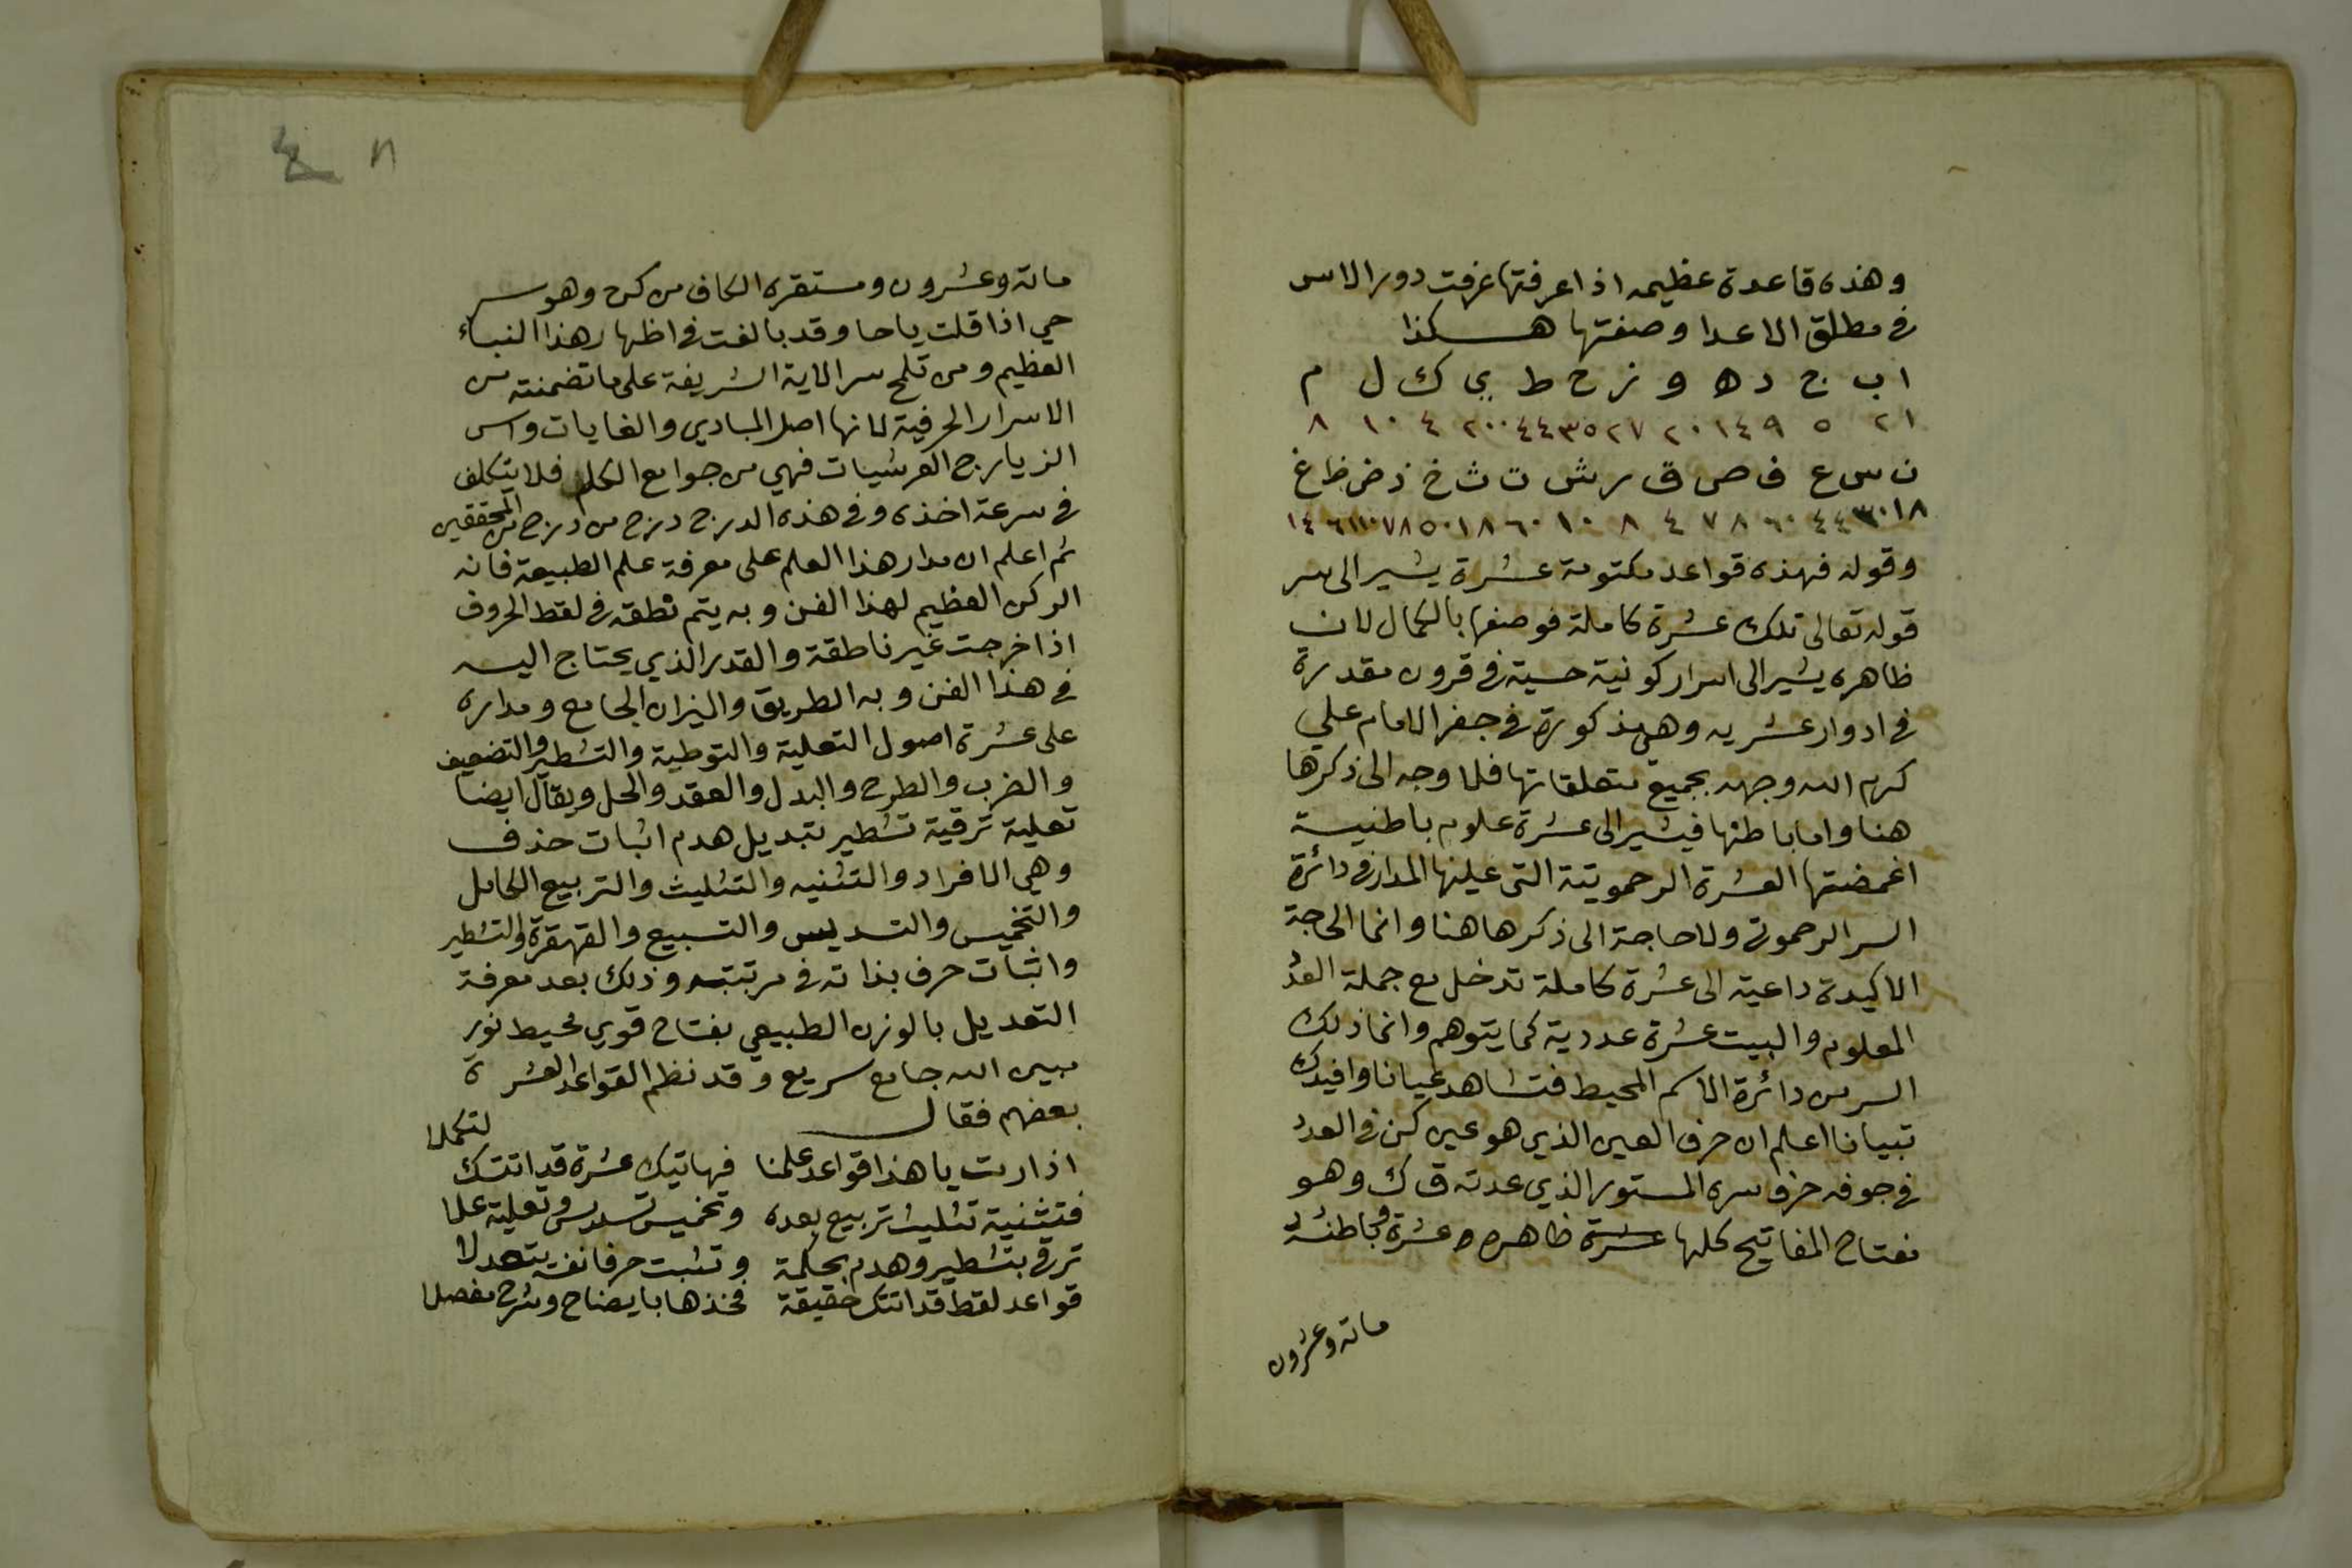 وهذه قاعدة عظيمه اذا عرفتها عرفت دور الاس
في مطلق الاعدا وصفتها هكذا
ا ب ج د ه و ز ح ط ي ك ل م
١ ٢ ٥ ٩ ١٤ ٢٠ ٢٧ ٣٥ ٤٤ ٢٠٠ ٤ ١٠ ٨
ن س ع ف ص ق ر ش ت ث خ ذ ض ظ غ
١٨ ٣٠ ٤٤ ٦٠ ٨ ٧ ٤ ٨ ١٠ ٦٠ ١٨ ٥٠ ٧٨ ١١٠ ٦ ١٤
وقوله فهذه قواعد مكتومة عشرة يشير الى سر
قوله تعالى تلك عشرة كاملة فوصفها بالكمال لان
ظاهره يشير الى اسرار كونية حسية في قرون مقدرة
في ادوار عشريه وهي مذكورة في جفر الامام علي
كرم الله وجهه بجميع متعلقاتها فلا وجه الى ذكرها
هنا واما باطنها فيشير الى عشرة علوم باطنية
اغمضتها العشرة الرحموتية التي عليها المدار في دائرة
السر الرحموتي ولا حاجة الى ذكرها هنا وانما الحاجة
الاكيدة داعية الى عشرة كاملة تدخل مع جملة العدد
المعلوم والبيت عشرة عددية كما يتوهم وانما ذلك
السر من دائرة الاسم المحيط فتشاهد عيانا وافيدك
تبيانا اعلم ان حرف العين الذي هو عين كن في العدد
في جوفه حرف سره المستور الذي عدته ق ك وهو
مفتاح المفاتيح كلها عشرة ظاهره عشرة وباطنه
مائة وعشرون
٨ ٤
مائة وعشرون ومستقره الكاف من كن وهو سر
حي اذا قلت ياحا وقد بالغت في اظهار هذا النباء
العظيم ومن تلمح سر الاية الشريفة على ما تضمنته من
الاسرار الحرفية لانها اصل المبادي والغايات واس
الزيارج العرشيات فهي من جوامع الكلم فلا يتكلف
في سرعة اخذه وفي هذه الدرج درج من درج من المحققين
ثم اعلم ان مدار هذا العلم على معرفة علم الطبيعة فانه
الركن العظيم لهذا الفن وبه يتم نطقه في لقط الحروف
اذا خرجت غير ناطقة والقدر الذي يحتاج اليه
في هذا الفن وبه الطريق والميزان الجامع ومداره
على عشرة اصول التعلية والتوطية والتشطير والتضعيف
والضرب والطرح والبدل والعقد والحل ويقال ايضا
تعلية ترقية تشطير تبديل هدم اثبات حذف
وهي الافراد والتثنيه والتثليث والتربيع الكامل
والتخميس والتسديس والتسبيع والقهقرة والتشطير
واثبات حرف بذاته في مرتبته وذلك بعد معرفة
التعديل بالوزن الطبيعي بفتاح قوي محيط نور
مبين الله جامع سريع وقد نظم القواعد العشرة
بعضهم فقال
اذا رت يا هذا قواعد علمنا فهاتيك عشرة قد اتتك لتكملا
فتثنية تثليث تربيع بعده وتخميس تسديس وتعلية علا
ترقى بتشطير وهدم بحكمة وتثبت حرفا نفسه بتعدلا
قواعد لقط قد اتتك حقيقة فخذها بايضاح وشرح مفصلا